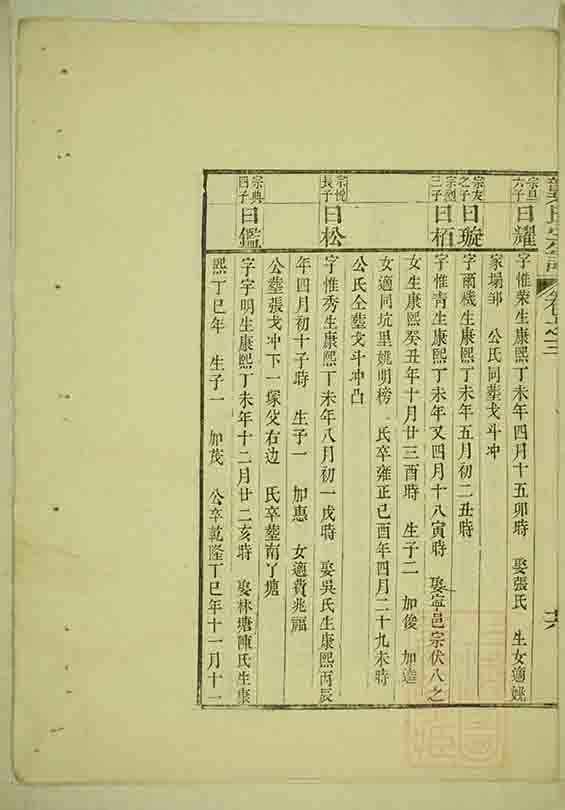 宗旦六子曰耀
字惟榮生康熙丁未年四月十五卯時 娶張氏 生女適姚
家塲邹 公氏同塟戈斗冲
宗友之子曰璇
字爾機生康熙丁未年五月初二丑時
三子曰栢
字惟青生康熙丁未年又四月十八寅時 娶寧邑宗伏八之
女生康熙癸丑年十月廿三酉時 生子二 加俊 加達
女適同坑里姚明榜 氏卒雍正己酉年四月二十九未時
公氏仝塟戈斗冲凸
宗悅長子曰松
字惟秀生康熙丁未年八月初一戌時 娶吳氏生康熙丙辰
年四月初十子時 生子一 加惠 女適費兆福
公塟張戈冲下一塚父右边 氏卒塟南丫塘
宗典四子曰鑑
字字明生康熙丁未年十二月廿二亥時 娶林塘陳氏生康
熙丁巳年 生子一 加茂 公卒乾隆丁巳年十一月十一